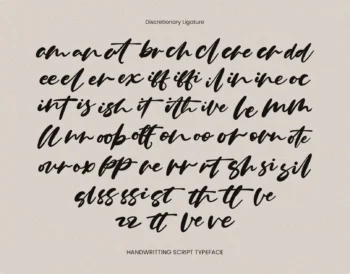 Discretionary Ligature
am an at br ch cl cre er dd
ee el er ex iff iffi il in ine oc
int is ish it ith ive le mm
ll nr oob off on oo or orn ote
our ox pp re rr rt sh si sil
gl ss ssi st th tt ve
zz tt ve ve
HANDWRITTING SCRIPT TYPEFACE